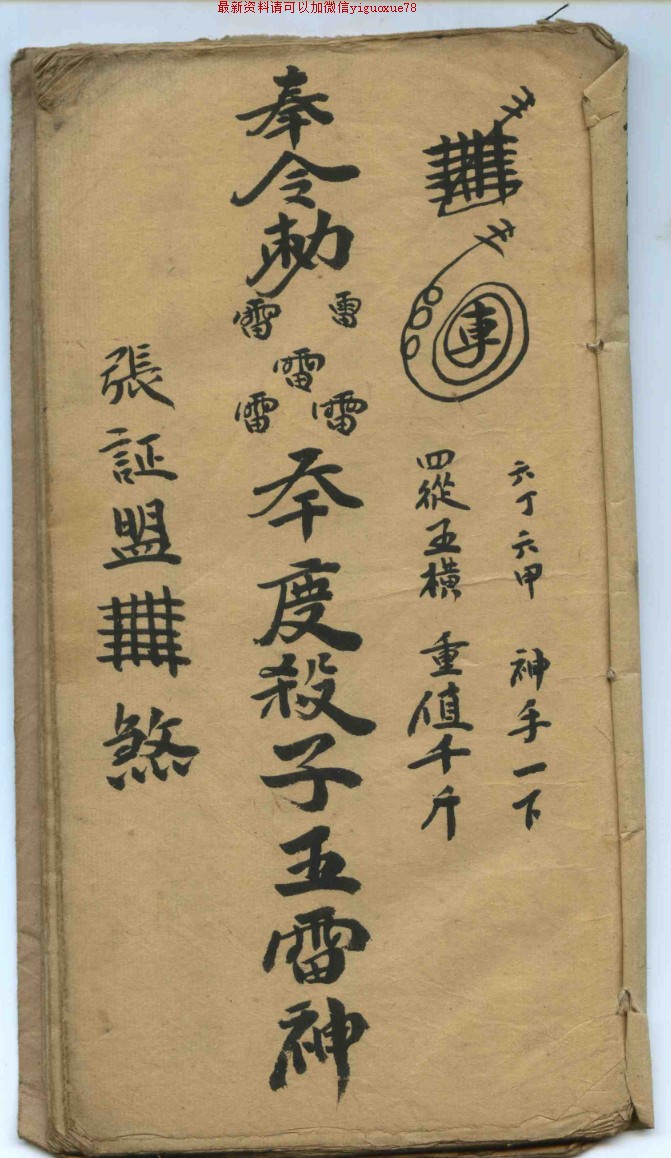 最新资料请可以加微信yiguoxue78
車
六丁六甲 神手一下
四從五橫 重值千斤
奉令勅
雷 雷
雷
雷 雷
夲度殺子五雷神
張証盟 煞